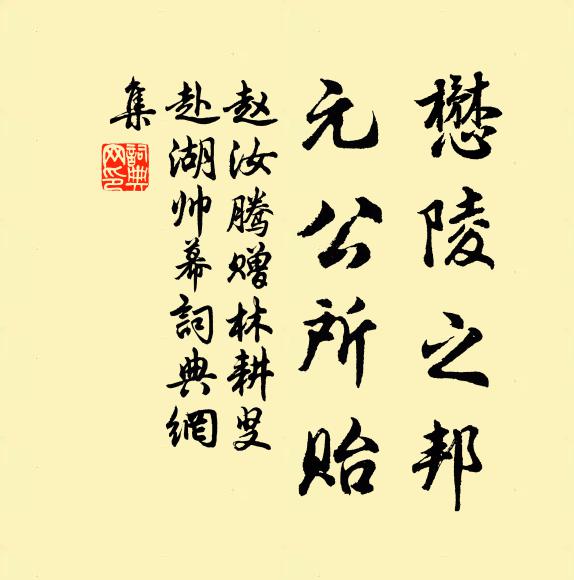 懋陵之邦
元公所贻
赵汝腾赠林耕叟
赴湖帅幕詞典網
集
詞典
网印